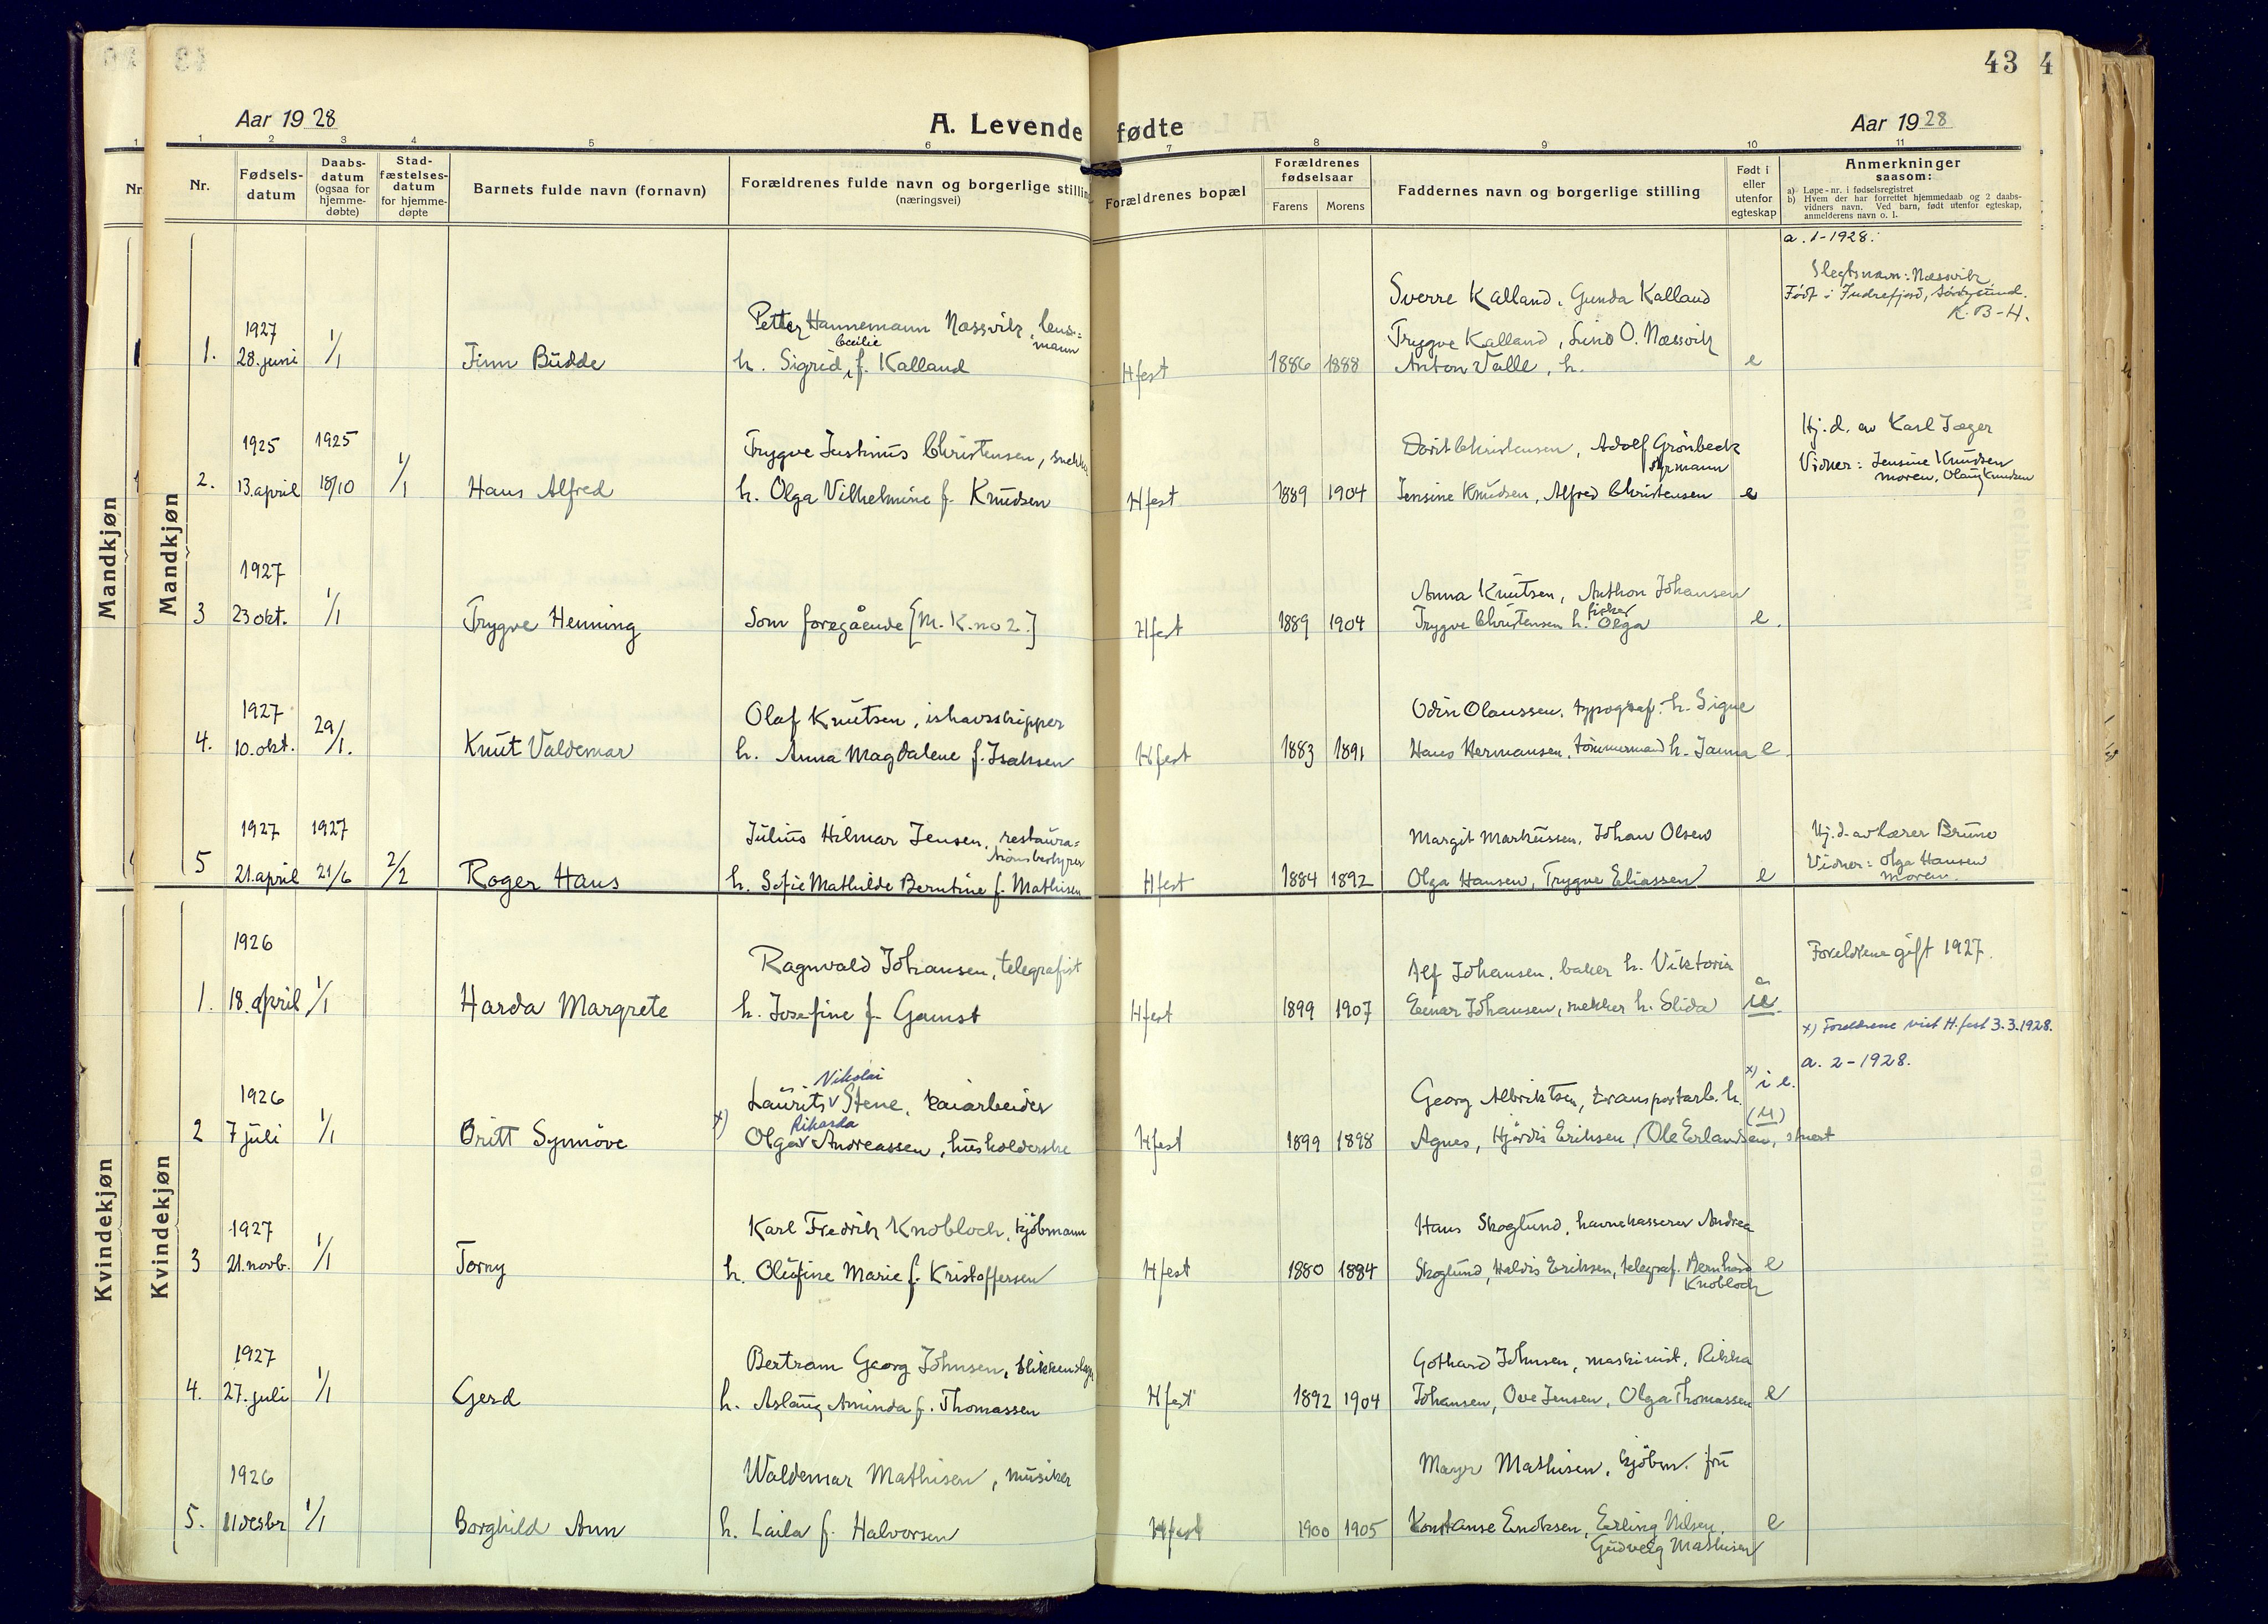 43 4
Aar 1928
A. Levende fødte
Aar 1928
1 2 3 4 5 6 7 8 9 10 11
Nr.
Nr.
Fødsels-
datum
Daabs-
datum
(ogsaa for
hjemme-
døbte)
Stad-
fæstelses-
datum
for hjemme-
døpte
Barnets fulde navn (fornavn)
Forældrenes fulde navn og borgerlige stilling
(næringsvei)
Forældrenes bopæl
Forældrenes
fødselsaar
Farens Morens
Faddernes navn og borgerlige stilling
Født i
eller
utenfor
egteskap
Anmerkninger
saasom:
a) Løpe-nr. i fødselsregistret
b) Hvem der har forrettet hjemmedaab og 2 daabs-
vidners navn. Ved barn, født utenfor egteskap,
anmelderens navn o. l.
Mandkjøn
Mandkjøn
1.
1927
28. juni
1/1
Finn Budde
Petter Hannemann Næssvik, lens-
mann
Cecilie
h. Sigrid, f. Kalland
Hfest
1886 1888
Sverre Kalland, Gunda Kalland
Trygve Kalland, O. Næssvik
Anton Valle, h.
e
a. 1-1928.
Slegtsnavn: Næssvik
Født i Indrefjord, Sörøysund.
K. B-H.
2.
1925
13. april
1925
18/10
1/1
Hans Alfred
Trygve Justinus Christensen, snekker
h. Olga Vilhelmine f. Knudsen
Hfest
1889 1904
Dorit Christensen, Adolf Grönbeck
styrmann
Jensine Knudsen, Alfred Christensen
e
Hj. d. av Karl Jæger
Vidner: Jensine Knudsen
moren, Olaug Knudsen
3
1927
23 okt.
1/1
Trygve Henning
Som foregående [M. K. no 2.]
Hfest
1889 1904
Anna Knutsen, Anthon Johansen
fisker
Trygve Christensen h. Olga
e.
4.
1927
10. okt.
29/1.
Knut Valdemar
Olaf Knutsen, ishavsskipper
h. Anna Magdalene f. Isaksen
Hfest
1883 1891
Odin Olaussen, typograf. h. Signe
Hans Hermansen, tömmermand h. Janna
e
5
1927
21. april
1927
21/6
2/2
Roger Hans
Julius Hilmar Jensen, restaura-
tionsbestyrer
h. Sofie Mathilde Berntine f. Mathisen
Hfest
1884 1892
Margit Markussen, Johan Olsen
Olga Hansen, Trygve Eliassen
e
Hj. d. av lærer Bruno
Vidner: Olga Hansen
moren.
Kvindekjøn
Kvindekjøn
1.
1926
18. april
1/1
Harda Margrete
Ragnvald Johansen, telegrafist
h. Josefine f. Gamst
Hfest
1899 1907
Alf Johansen, baker h. Viktoria
Einar Johansen, snekker h. Elida
Foreldrene gift 1927.
2
1926
7 juli
1/1
Britt Synnöve
Nikolai
Laurits v Stene, kaiarbeider
x) Rikarda
Olga v Andreassen, husholderske
Hfest
1899 1898
Georg Albriktsen, transportarb. h.
Agnes, Hjördis Eriksen, Ole Erlandsen, stuert
x) i e.
(u)
x) Foreldrene viet H.fest 3.3.1928.
a. 2-1928.
3
1927
21. novb.
1/1
Torny
Karl Fredrik Knobloch, kjöbmann
h. Olufine Marie f. Kristoffersen
Hfest
1880 1884
Hans Skoglund, havnekasserer Andrea
Skoglund, Haldis Eriksen, telegraf. Bernhard
Knobloch
e
4.
1927
27. juli
1/1
Gerd
Bertram Georg Johnsen, blikkenslager
h. Aslaug Aminda f. Thomassen
Hfest
1892 1904
Gothard Johnsen, maskinist, Rikka
Johansen, Ove Jensen, Olga Thomassen
e
5.
1926
11 desbr
1/1
Borghild Ann
Waldemar Mathisen, musiker
h. Laila f. Halvorsen
Hfest
1900 1905
Mayr Mathisen, kjöbm. fru
Konstanse Eriksen, Erling Nilsen,
Gudveig Mathisen
e